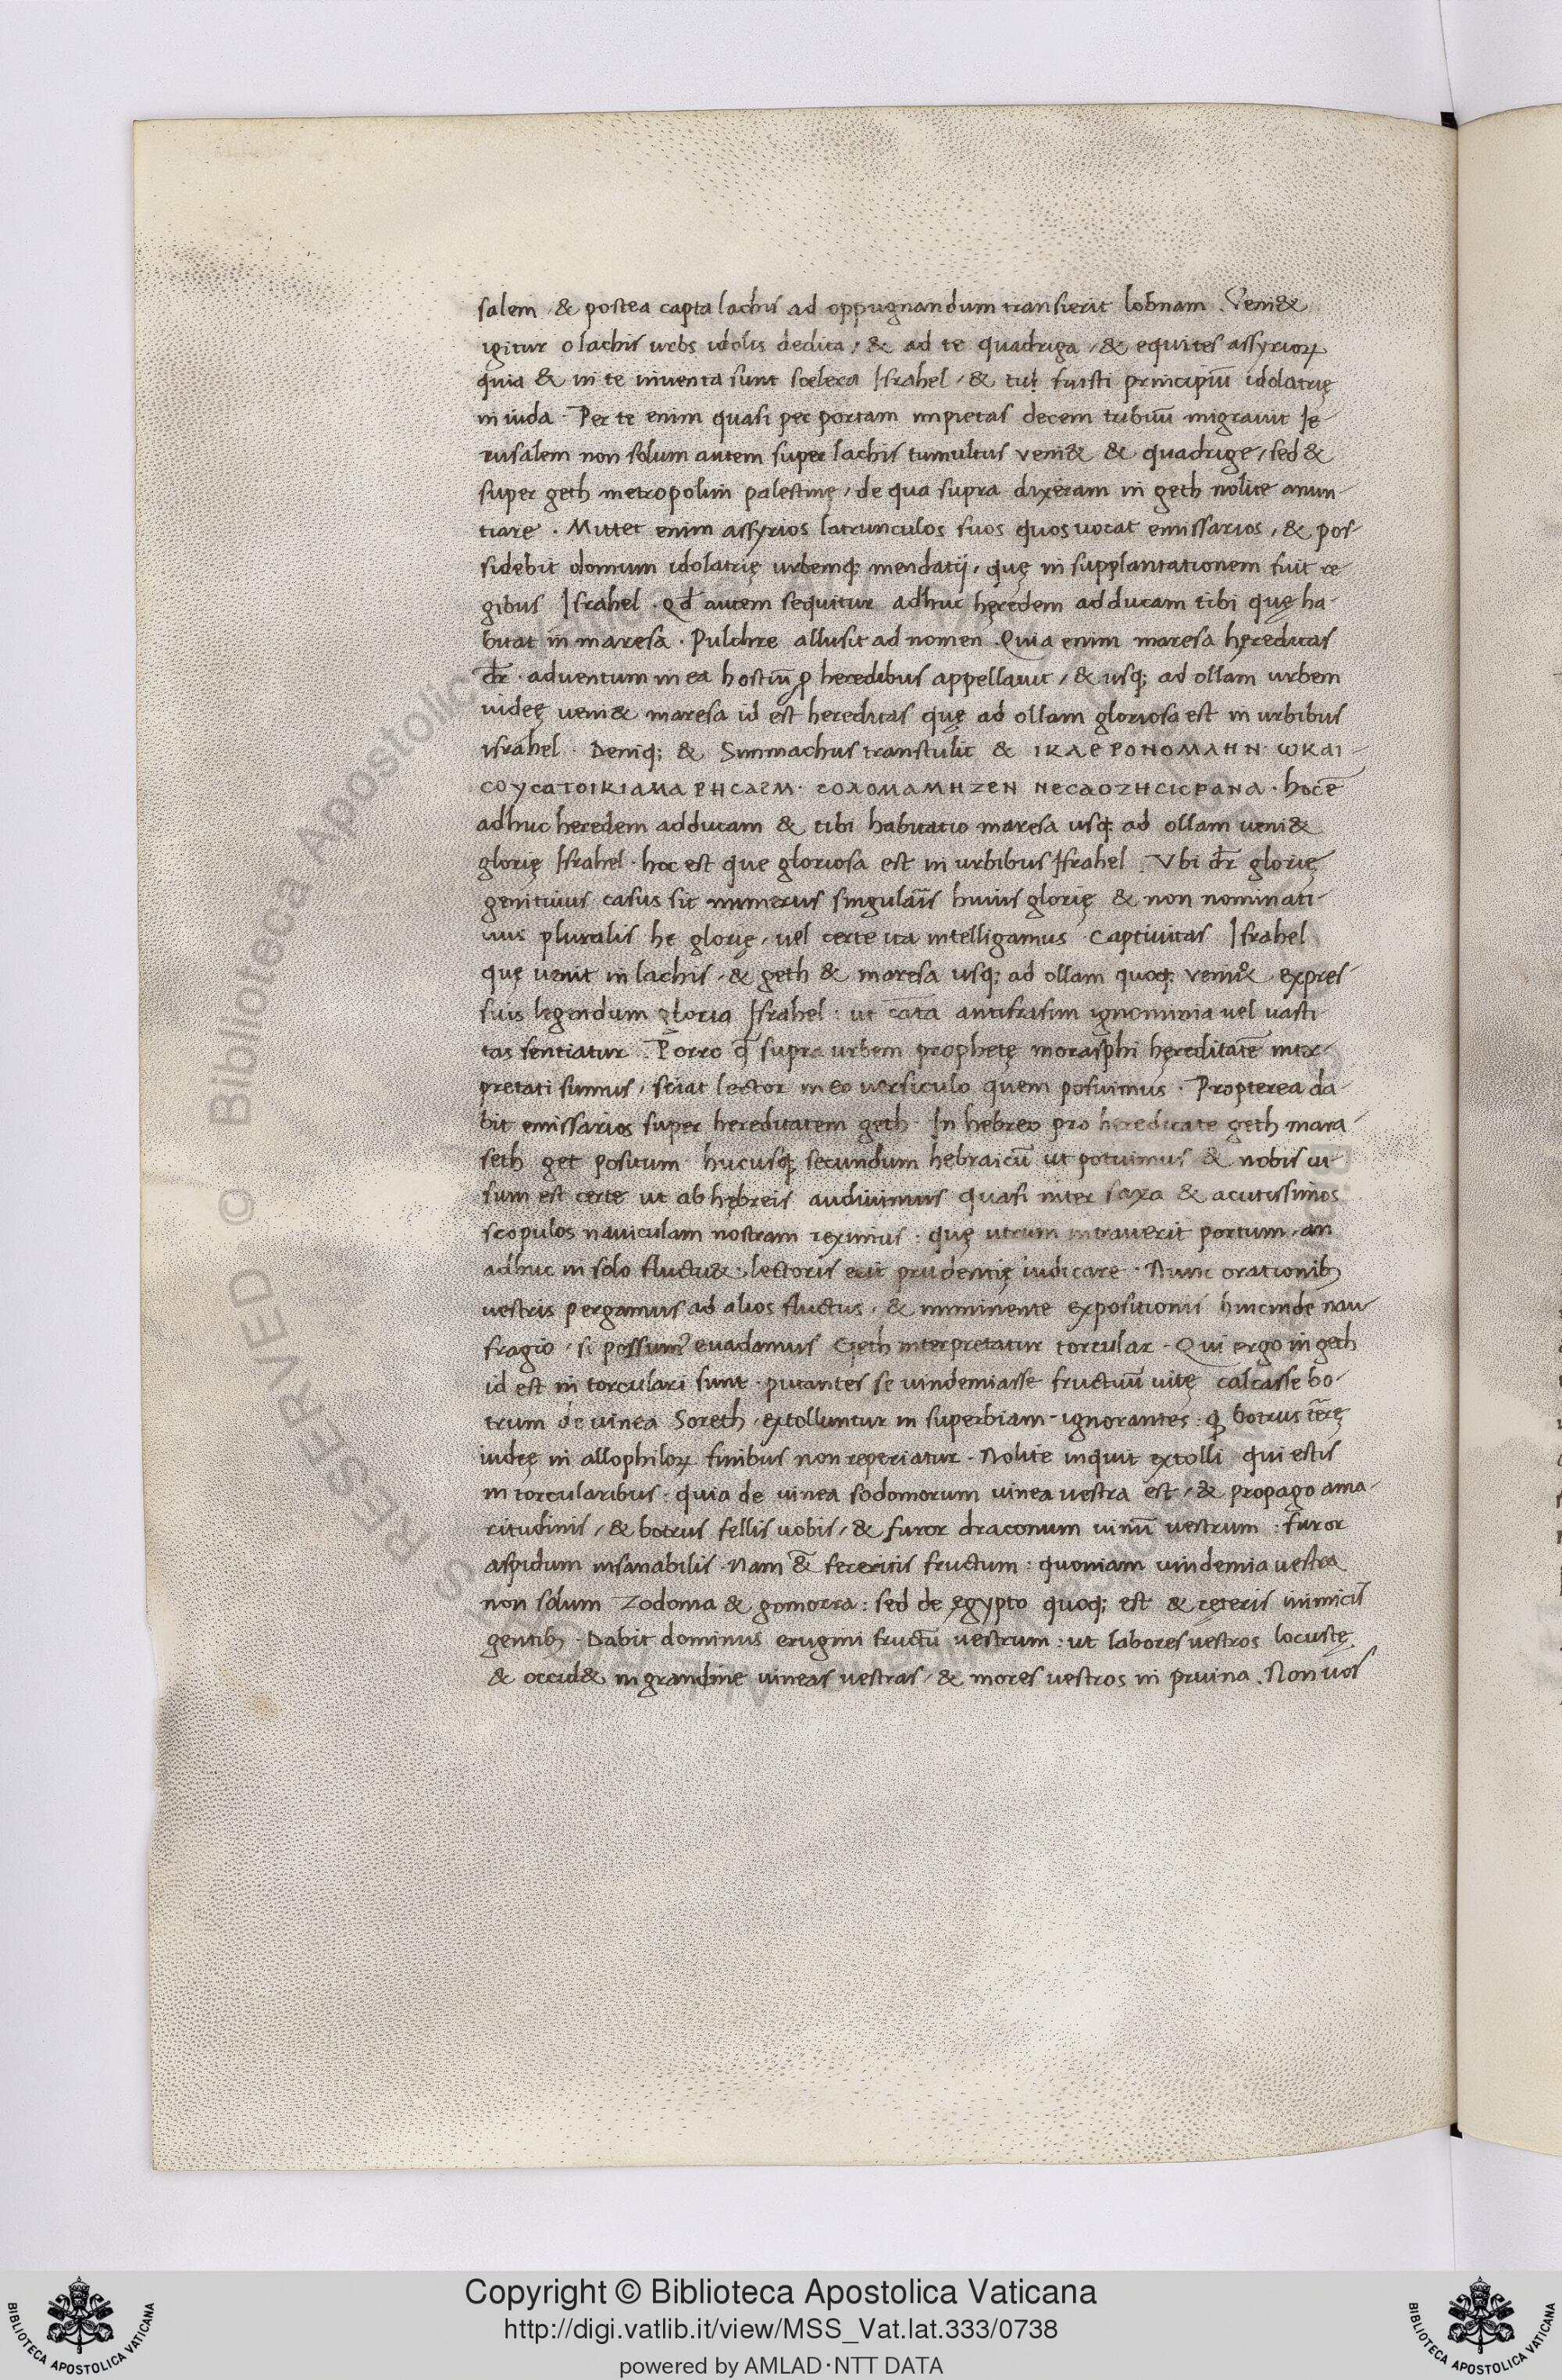 salem & postea capta lachis ad oppugnandum transierit lobnam . Veni&
igitur o lachis urbs idolis dedita / & ad te quadriga / & equites assyrioꝝ
quia & in te inventa sunt scelera Israhel / & tu fuisti principiū idolatrię
in iuda . Per te enim quasi per portam impietas decem tribuū migravit Ie
rusalem non solum autem super lachis tumultus veni& & quadrige / sed &
super geth metropolim palestinę / de qua supra dixeram in geth nolite anun-
tiare . Mittet enim assyrios latrunculos suos quos vocat emissarios , & pos-
sidebit domum idolatrię urbemq; mendatij , quę in supplantationem fuit re
gibus Israhel . Qđ autem sequitur adhuc hęredem adducam tibi quę ha-
bitat in maresa . Pulchre allusit ad nomen . Quia enim maresa hęreditas
dr̄ . adventum in ea hostiū ꝓ heredibus appellavit / & usq; ad ollam urbem
iudeę veni& maresa id est hereditas quę ad ollam gloriosa est in urbibus
israhel . Deniq; & Simmachus transtulit & ΙΚΛΕΡΟΝΟΜΛΗΝ ωΚΑΙ-
COYCATOIKIAMA PHCAEM . COΛOMAMHZEN NECAOZHCICPANA . hoc ē
adhuc heredem adducam & tibi habitatio maresa usq; ad ollam veni&
glorię Israhel . hoc est que gloriosa est in urbibus Israhel . Ubi dr̄ glorię
genitivus casus sit numerus singularis huius glorię & non nominati-
vus pluralis he glorię , vel certe ita intelligamus . Captivitas Israhel
quę venit in lachis , & geth & maresa usq; ad ollam quoq; veni& expres-
sius legendum gloria Israhel : ut cata antifrasim ignominia vel vasti-
tas sentiatur . Porro q̄ supra urbem prophetę morasphi hęreditatē inter-
pretati sumus , sciat lector in eo versiculo quem posuimus . Propterea da-
bit emissarios super hereditatem geth . In hebreo pro hereditate geth mara-
seth get positum hucusq; secundum hebraicū ut potuimus & nobis vi-
sum est certe ut ab hębreis audivimus quasi inter saxa & acutissimos
scopulos naviculam nostram reximus : quę utrum intraverit portum , an
adhuc in solo fluctu& , lectoris erit prudentię iudicare . Nunc orationib;
vestris pergamus ad alios fluctus , & imminente expositionii hincinde nau-
fragio , si possum' evadamus . Geth interpretatur torcular . Qui ergo in geth
id est in torculari sunt . putantes se vindemiasse fructuū vitę calcasse bo-
trum de vinea Soreth , extolluntur in superbiam - ignorantes : ꝙ botrus terrę
iudeę in allophiloꝝ finibus non reperiatur . Nolite inquit extolli qui estis
in torcularibus . quia de vinea sodomorum vinea vestra est , & propago ama-
ritudinis , & botrus fellis vobis , & furor draconum vinū vestrum : furor
aspidum insanabilis . Nam & feceritis fructum : quoniam vindemia vestra
non solum Zodoma & gomorra : sed de ęgypto quoq; est & ceteris inimicis
gentib; . Dabit dominus erugini fructū vestrum : ut labores vestros locustę
& occid& in grandine vineas vestras , & mores vestros in pruina . Non vos
RESERVED © Biblioteca Apostolica
Copyright © Biblioteca Apostolica Vaticana
http://digi.vatlib.it/view/MSS_Vat.lat.333/0738
powered by AMLAD·NTT DATA
BIBLIOTECA APOSTOLICA VATICANA
BIBLIOTECA APOSTOLICA VATICANA